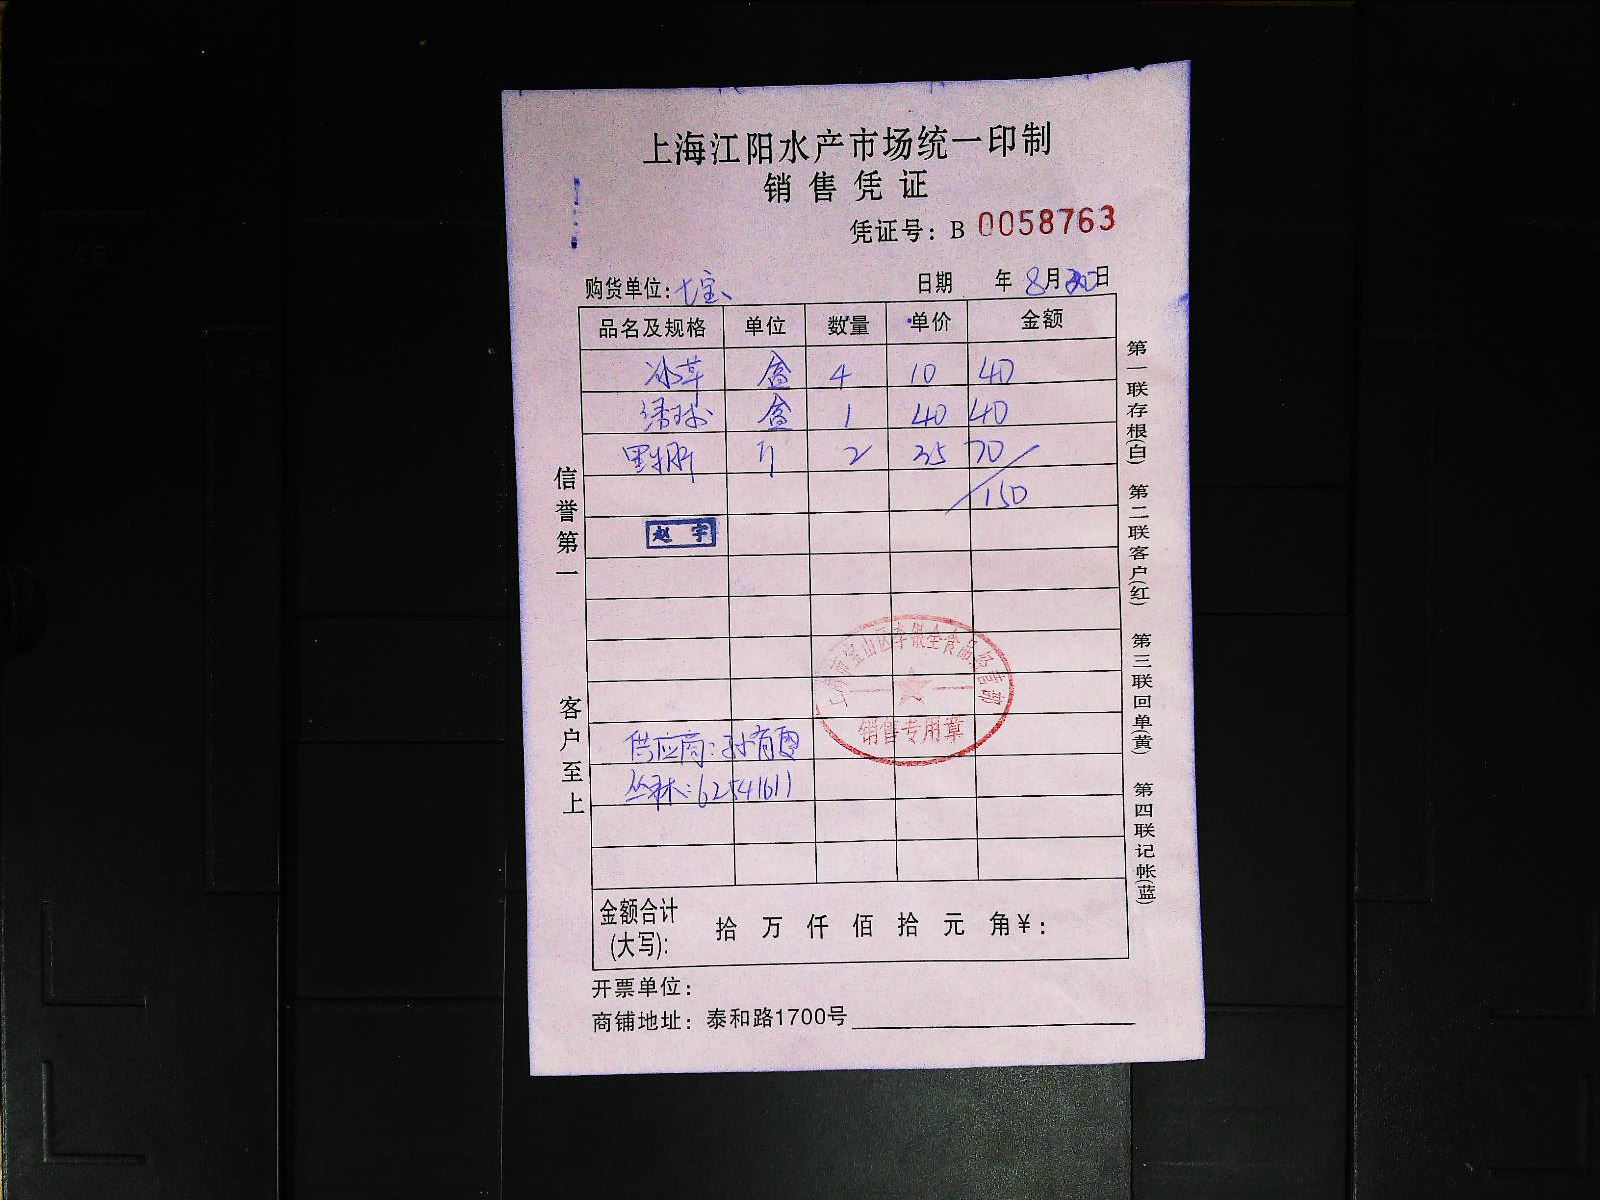 上海江阳水产市场统一印制
销售凭证
凭证号：B 0058763
购货单位：七宝
日期 年 8月30日
品名及规格 单位 数量 单价 金额
冰草 盒 4 10 40
盒 1 40 40
斤 2 35 70
150
赵宇
上海市宝山区李银全食品经营部
销售专用章
供应商：孙育
丛林：62541611
金额合计(大写)： 拾 万 仟 佰 拾 元 角 ¥：
开票单位：
商铺地址：泰和路1700号
信誉第一
客户至上
第一联存根(白) 第二联客户(红) 第三联回单(黄) 第四联记帐(蓝)